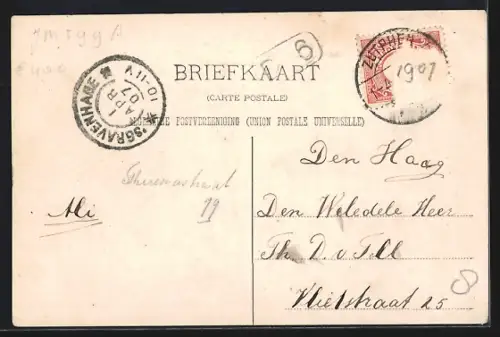 6
ZUTPHEN
1907
'SGRAVENHAGE
10-11V
1
APR
07
BRIEFKAART
(CARTE POSTALE)
ALGEMEENE POSTVEREENIGING (UNION POSTALE UNIVERSELLE)
Den Haag
19
Ali
Den Weledele Heer
Th. D. v Tell
Vlietstraat 25
8